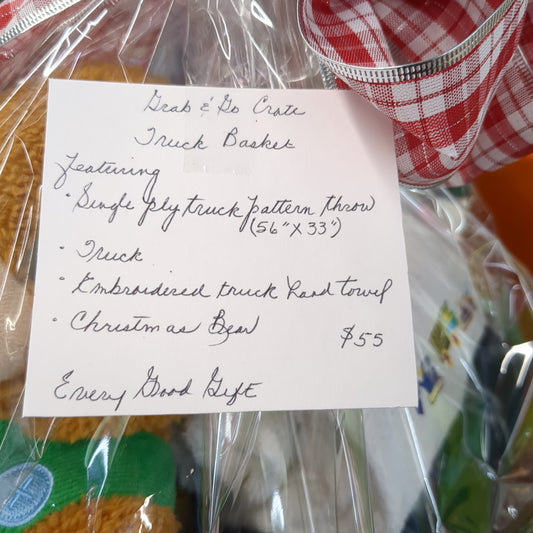 Grab & Go Crate
Truck Basket
featuring
· Single ply truck pattern throw
(56" X 33")
· Truck
· Embroidered truck hand towel
· Christmas Bear
$55
Every Good Gift